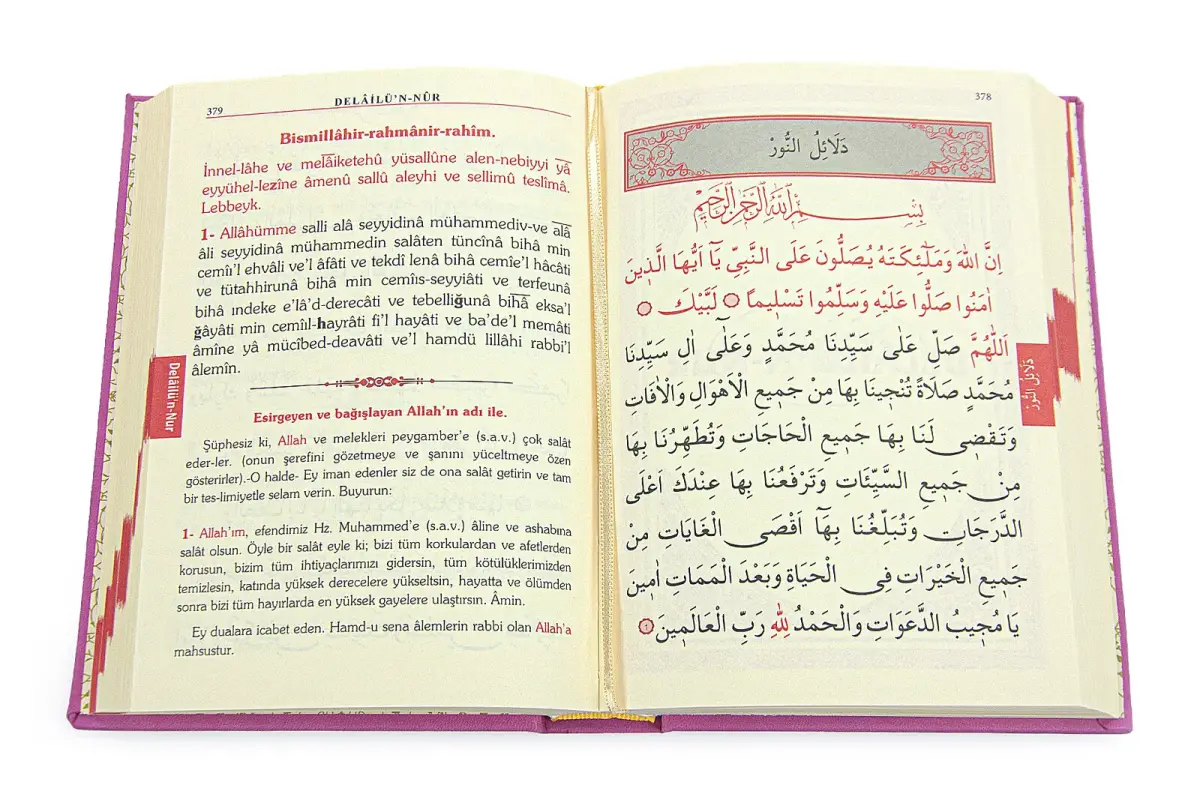 378
دَلَائِلُ النُّورْ
بِسْمِ اللّٰهِ الرَّحْمٰنِ الرَّحِيمِ
اِنَّ اللّٰهَ وَمَلٰٓئِكَتَهُ يُصَلُّونَ عَلَى النَّبِيِّ يَٓا اَيُّهَا الَّذِينَ
اٰمَنُوا صَلُّوا عَلَيْهِ وَسَلِّمُوا تَسْلِيمًا لَبَّيْكَ
اَللّٰهُمَّ صَلِّ عَلٰى سَيِّدِنَا مُحَمَّدٍ وَعَلٰٓى اٰلِ سَيِّدِنَا
مُحَمَّدٍ صَلَاةً تُنْجِينَا بِهَا مِنْ جَمِيعِ الْاَهْوَالِ وَالْاٰفَاتِ
وَتَقْضِي لَنَا بِهَا جَمِيعَ الْحَاجَاتِ وَتُطَهِّرُنَا بِهَا
مِنْ جَمِيعِ السَّيِّئَاتِ وَتَرْفَعُنَا بِهَا عِنْدَكَ اَعْلَى
الدَّرَجَاتِ وَتُبَلِّغُنَا بِهَٓا اَقْصَى الْغَايَاتِ مِنْ
جَمِيعِ الْخَيْرَاتِ فِي الْحَيَاةِ وَبَعْدَ الْمَمَاتِ اٰمِينَ
يَا مُجِيبُ الدَّعَوَاتِ وَالْحَمْدُ لِلّٰهِ رَبِّ الْعَالَمِينَ ١
دَلَائِلُ النُّورْ
379
DELÂİLÜ’N-NÛR
Bismillâhir-rahmânir-rahîm.
İnnel-lâhe ve melâiketehû yüsallûne alen-nebiyyi yâ
eyyühel-lezîne âmenû sallû aleyhi ve sellimû teslîmâ.
Lebbeyk.
1- Allâhümme salli alâ seyyidinâ mühammediv-ve alâ
âli seyyidinâ mühammedin salâten tüncînâ bihâ min
cemîi’l ehvâli ve’l âfâti ve tekdî lenâ bihâ cemîe’l hâcâti
ve tütahhirunâ bihâ min cemîis-seyyiâti ve terfeunâ
bihâ ındeke e’lâ’d-derecâti ve tebelliğunâ bihâ eksa’l
ğâyâti min cemîil-hayrâti fi’l hayâti ve ba’de’l memâti
âmîne yâ mücîbed-deavâti ve’l hamdü lillâhi rabbi’l
âlemîn.
Esirgeyen ve bağışlayan Allah’ın adı ile.
Şüphesiz ki, Allah ve melekleri peygamber’e (s.a.v.) çok salât
eder-ler. (onun şerefini gözetmeye ve şanını yüceltmeye özen
gösterirler).-O halde- Ey iman edenler siz de ona salât getirin ve tam
bir tes-limiyetle selam verin. Buyurun:
1- Allah’ım, efendimiz Hz. Muhammed’e (s.a.v.) âline ve ashabına
salât olsun. Öyle bir salât eyle ki; bizi tüm korkulardan ve afetlerden
korusun, bizim tüm ihtiyaçlarımızı gidersin, tüm kötülüklerimizden
temizlesin, katında yüksek derecelere yükseltsin, hayatta ve ölümden
sonra bizi tüm hayırlarda en yüksek gayelere ulaştırsın. Âmin.
Ey dualara icabet eden. Hamd-u sena âlemlerin rabbi olan Allah’a
mahsustur.
Delâilü’n-Nur